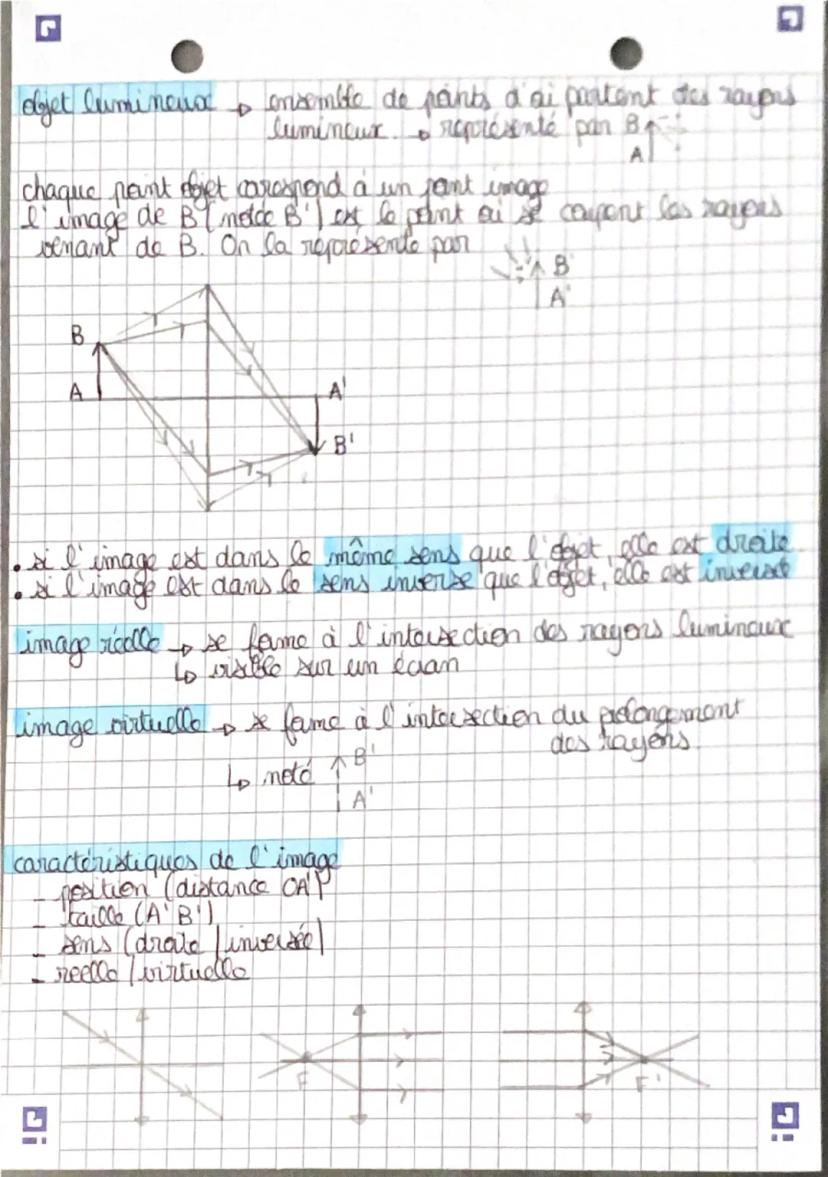 objet lumineux → ensemble de points d'où partent des rayons
lumineux. → représenté par B
A
chaque point objet correspond à un point image
l'image de B (notée B') est le point où se coupent les rayons
venant de B. On la représente par
B
A'
B
A
A'
B'
• si l'image est dans le même sens que l'objet, elle est droite
• si l'image est dans le sens inverse que l'objet, elle est inversée
image réelle → se forme à l'intersection des rayons lumineux
↳ visible sur un écran
image virtuelle → se forme à l'intersection du prolongement
des rayons.
↳ noté B'
A'
caractéristiques de l'image
- position (distance OA')
- taille (A'B')
- sens (droite / inversée)
- reelle / virtuelle
F
F'